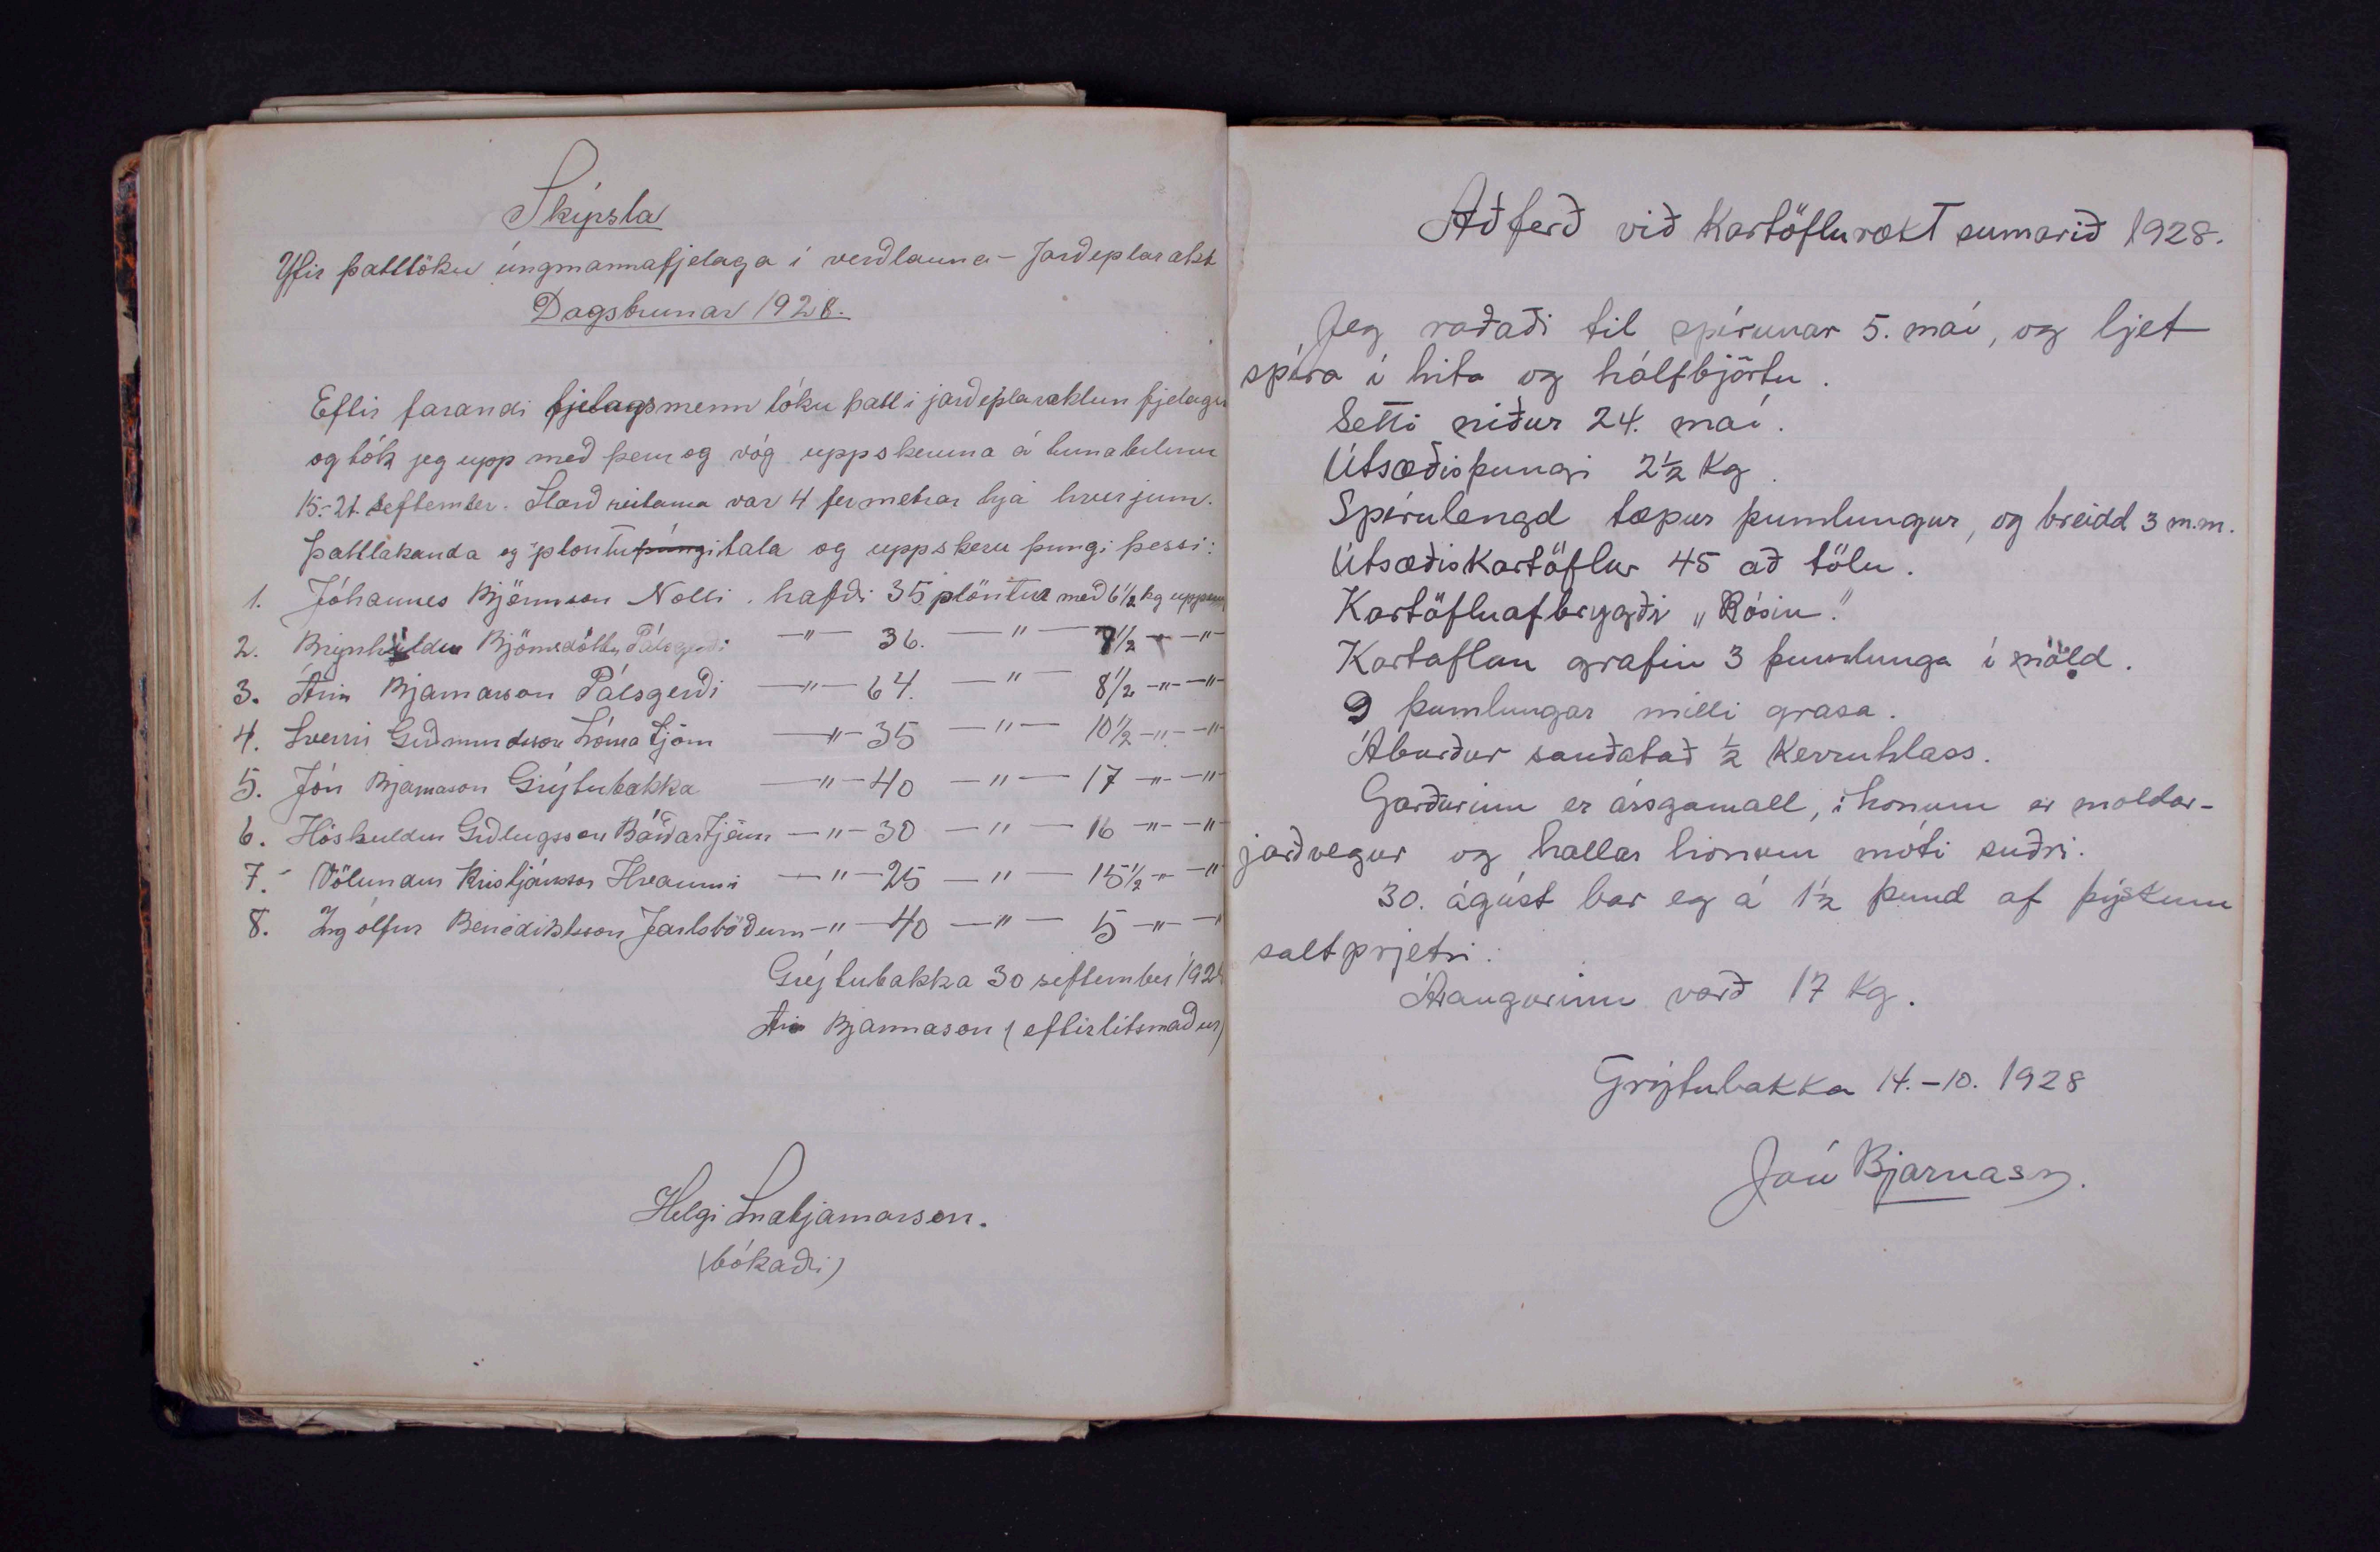 Skýrsla
Yfir þátttöku úngmannafjelaga í verdlauna-Jardeplarækt
Dagsbrúnar 1928.
Eftir farandi fjelagsmenn tóku þátt í jardeplaræktun fjelagsin
og tók jeg upp med þeim og vóg uppskeruna á timabilinu
15.-21. seftember. Stærd reitanna var 4 fermetrar hjá hverjum.
Þátttakenda og plöntutala og uppskeru þungi þessi:
1. Jóhannes Björnsson Nolli. hafði 35 plöntur með 6½ kg uppskeru
2. Brynhildur Björnsdóttir Pálsgerði —"— 36. —"— 7½ -"- -"-
3. Árni Bjarnarson Pálsgerði —"— 64. —"— 8½ -"- -"-
4. Sverri Guðmundsson Lómatjörn —"— 35 —"— 10½ -"- -"-
5. Jón Bjarnason Grýtubakka —"— 40 —"— 17 -"- -"-
6. Höskuldur Guðlugsson Bárðartjörn —"— 30 —"— 16 -"- -"-
7. Völundur Kristjánsson Hvammi —"— 25 —"— 15½ -"- -"-
8. Ingólfur Benediktsson Jarlsstöðum —"— 40 —"— 5 -"- -"-
Grýtubakka 30 seftember 1928
Bjarnason (eftirlitsmaður)
Helgi Snæbjarnarson.
(bókaði)
Aðferð við Kartöflurækt sumarið 1928.
Jeg raðaði til spírunar 5. maí, og ljet
spíra í hita og hálfbjörtu.
Setti niður 24. maí.
Útsæðisþungi 2½ Kg.
Spírulengd tæpur þumlungur, og breidd 3 m.m.
Útsæðiskartöflur 45 að tölu.
Kartöfluafbrygði „Rósin."
Kartaflan grafin 3 þumlunga í mold.
9 þumlungar milli grasa.
Áburður sauðatað ½ Kerruhlass.
Garðurinn er ársgamall, í honum er moldar-
jarðvegur og hallar honum móti suðri.
30. ágúst bar eg á 1½ pund af þýskum
saltprjetri.
Árangurinn varð 17 Kg.
Grýtubakka 14.-10. 1928
Jón Bjarnason.